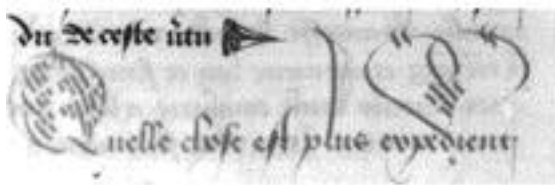 du de ceste v̄tu
Quelle chose est plus expedient